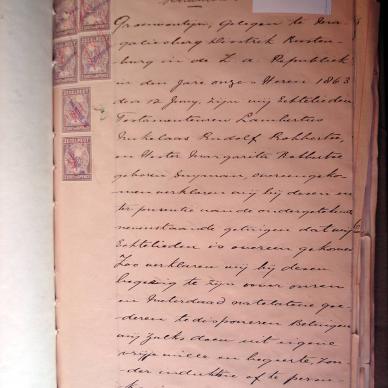 ZEGELRECHT
ZEGELRECHT
ZEGELRECHT
Groenfontein, Gelegen te Maga-
galiesberg Distrik Rusten-
burg in de Z. A. Republiek
in den Jare onze Heren 1863
den 12 Juny, zijn wij Echtelieden
Testamenteuren Lambertus
Nickolaas Rudolf Robbertse
en Hester Margarita Robbertse
geboren overeengeko-
men verklaren wij bij dezen en
ter presentie van de ondergetekende
nevenstaande getuigen dat wij
Echtelieden is overeen gekomen
Zoo verklaren wij bij dezen
begeerig te zijn over onzen
en Inderdaad natelatene goe-
deren te disponeren Betuigen
wij Zulks doen uit eigene
vrije wille en begeerte, zon-
der inductien of te persua-